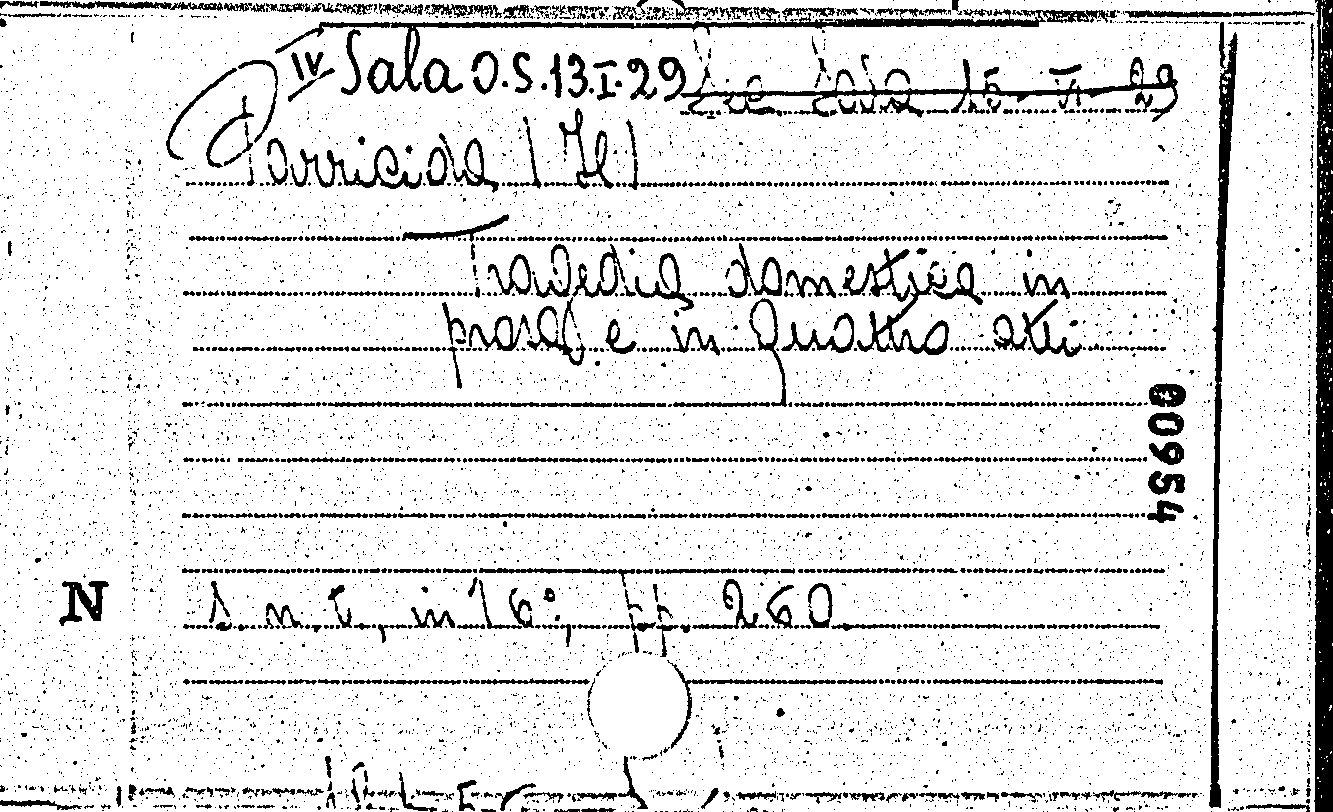 IV Sala O.S.13.I.29 Sala 15-VI-29
Parricida (Il)
Tragedia domestica in
prosa e in quattro atti
00954
N
s.n.t., in 16°, pp. 260.